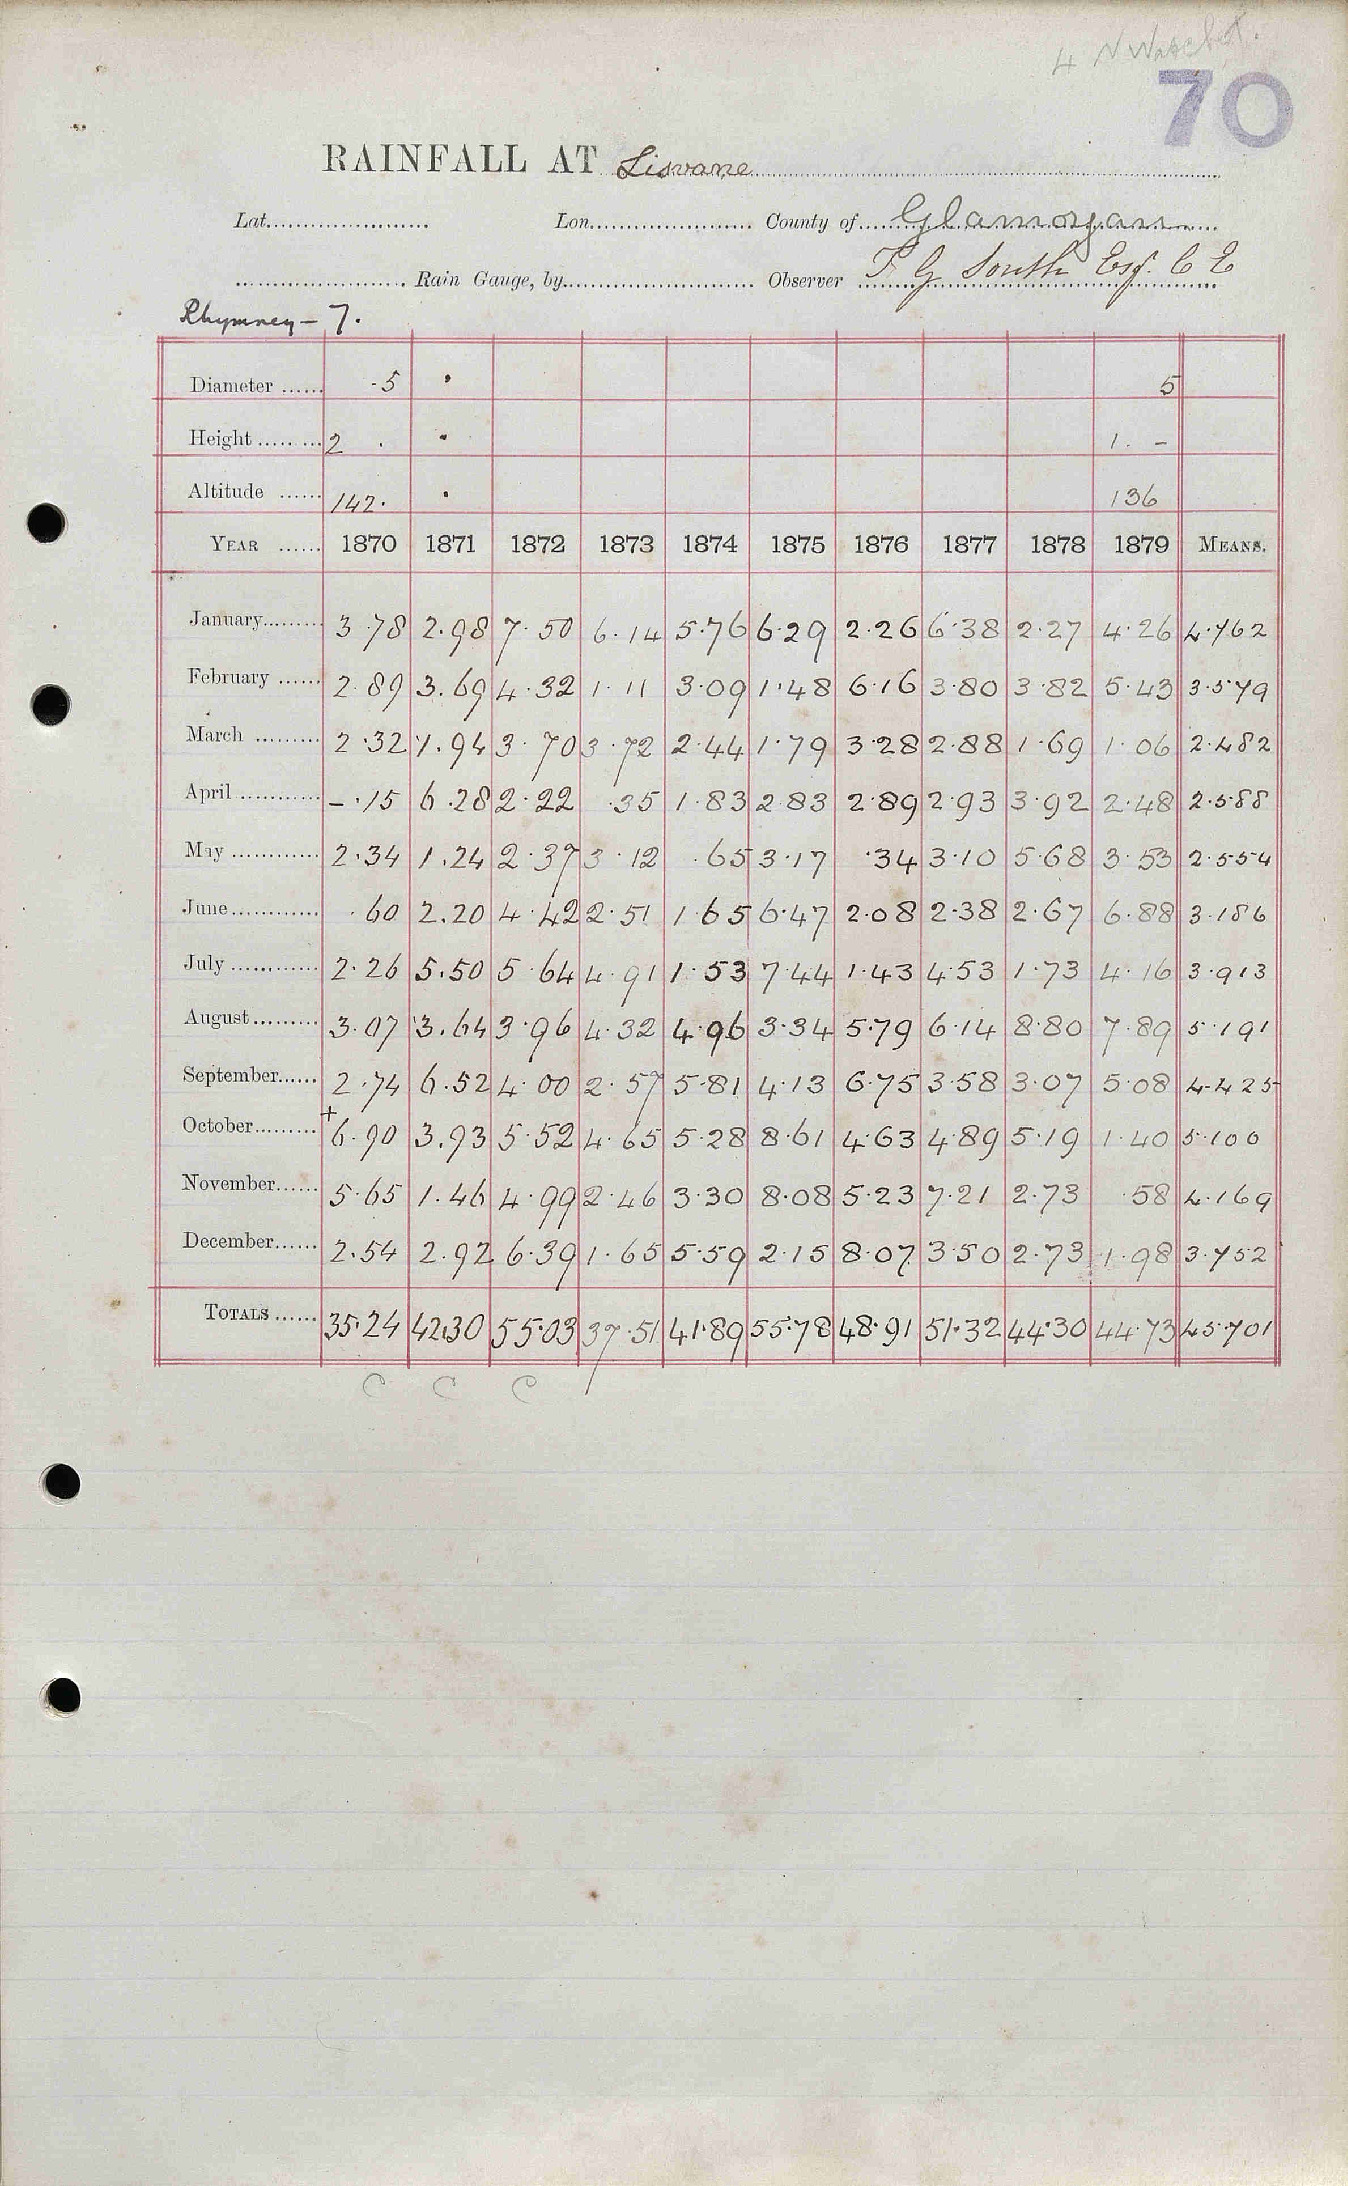 70
RAINFALL AT Lisvane
Lat. Lon. County of Glamorgan
Rain Gauge, by Observer T G South Esq. C E
Rhymney - 7.
Diameter - 5 5
Height 2 . 1. -
Altitude 142. 136
YEAR 1870 1871 1872 1873 1874 1875 1876 1877 1878 1879 MEANS.
January 3.78 2.98 7.50 6.14 5.76 6.29 2.26 6.38 2.27 4.26 4.762
February 2.89 3.69 4.32 1.11 3.09 1.48 6.16 3.80 3.82 5.43 3.579
March 2.32 1.94 3.70 3.72 2.44 1.79 3.28 2.88 1.69 1.06 2.482
April -.15 6.28 2.22 .35 1.83 2.83 2.89 2.93 3.92 2.48 2.588
May 2.34 1.24 2.37 3.12 .65 3.17 .34 3.10 5.68 3.53 2.554
June .60 2.20 4.42 2.51 1.65 6.47 2.08 2.38 2.67 6.88 3.186
July 2.26 5.50 5.64 4.91 1.53 7.44 1.43 4.53 1.73 4.16 3.913
August 3.07 3.64 3.96 4.32 4.96 3.34 5.79 6.14 8.80 7.89 5.191
September 2.74 6.52 4.00 2.57 5.81 4.13 6.75 3.58 3.07 5.08 4.425
October +6.90 3.93 5.52 4.65 5.28 8.61 4.63 4.89 5.19 1.40 5.100
November 5.65 1.46 4.99 2.46 3.30 8.08 5.23 7.21 2.73 .58 4.169
December 2.54 2.92 6.39 1.65 5.59 2.15 8.07 3.50 2.73 1.98 3.752
TOTALS 35.24 42.30 55.03 37.51 41.89 55.78 48.91 51.32 44.30 44.73 45.701
C C C